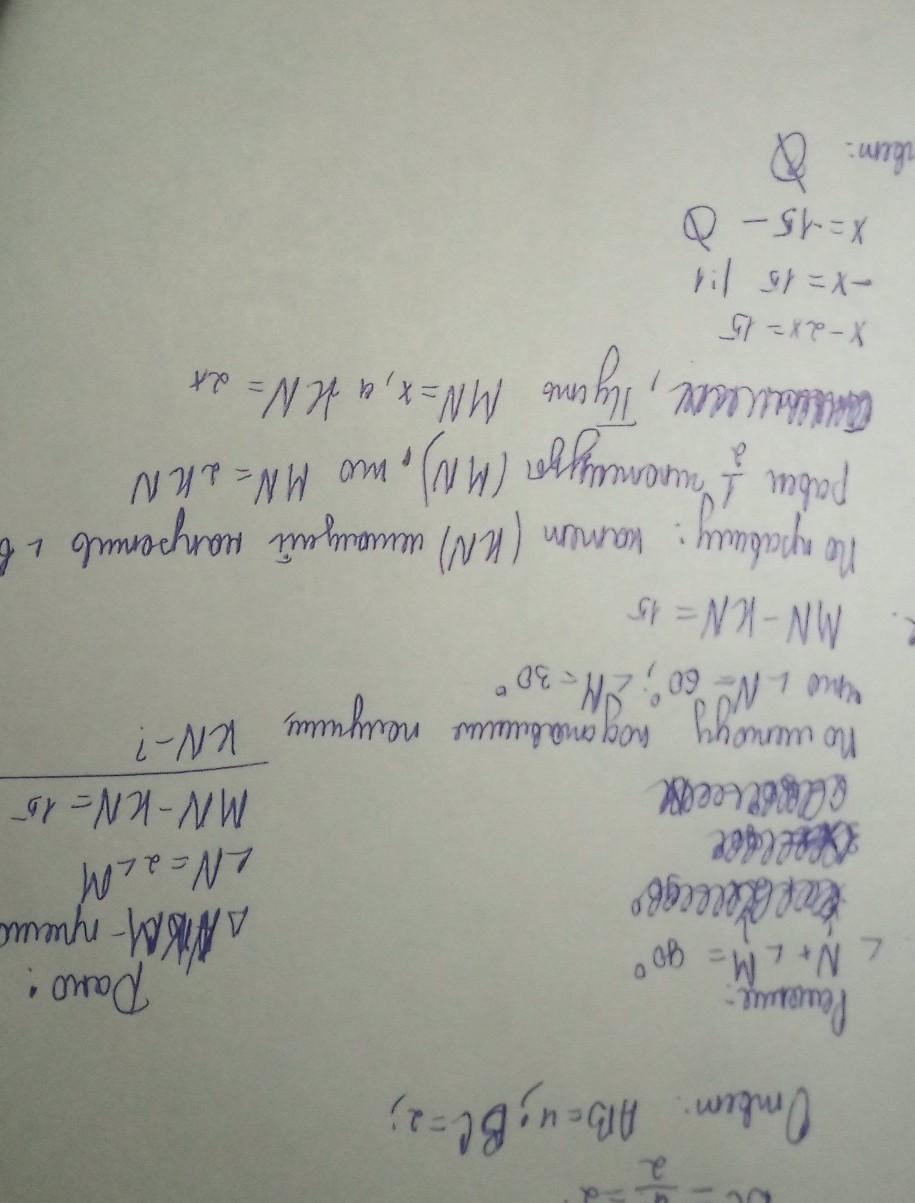 = 4/2 = 2
Ответ: AB=4; BC=2;
Решение:
Дано:
∠N+∠M=90°
∠N=2∠M
MN-KN=15
По методу подстановки получим,
KN-?
что ∠N=60°; ∠M=30°
MN-KN=15
По правилу: катет (KN) лежащий напротив ∠ в
равен 1/2 гипотенузы (MN), то MN=2KN
Пусть MN=x, а KN=2x
x-2x=15
-x=15 |:1
x=-15 - Ø
твет: Ø